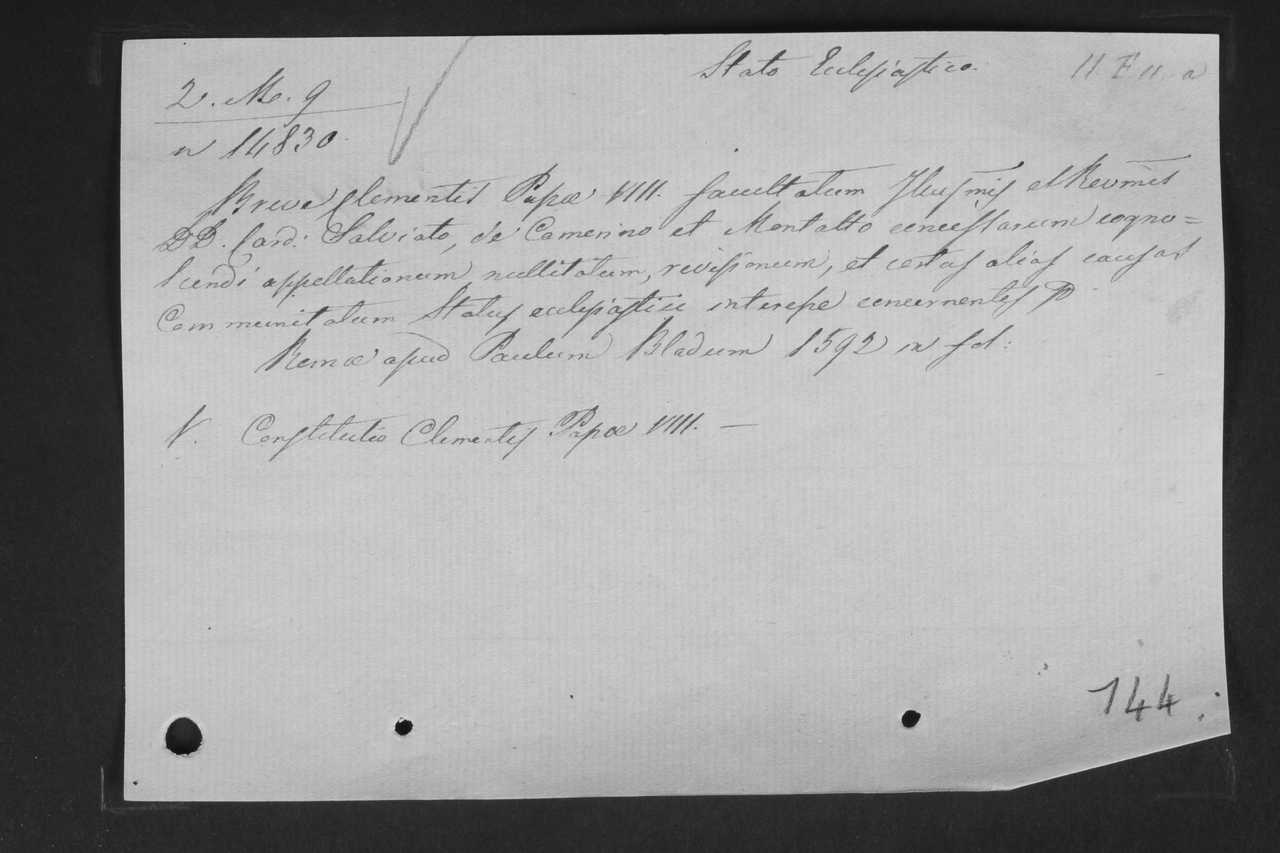 Stato Ecclesiastico.
11. F. 11. a
2. M. 9
n 14830.
Breve Clementis Papæ VIII. facultatum Illusmis et Revmis
DD. Card: Salviato, de Camerino et Montalto concessarum cogno=
scendi appellationum nullitatum, revisionum, et certas alias causas
Communitatum Status ecclesiastici interesse concernentes
Romæ apud Paulum Bladum 1592 in fol:
V. Constitutio Clementis Papæ VIII. —
144